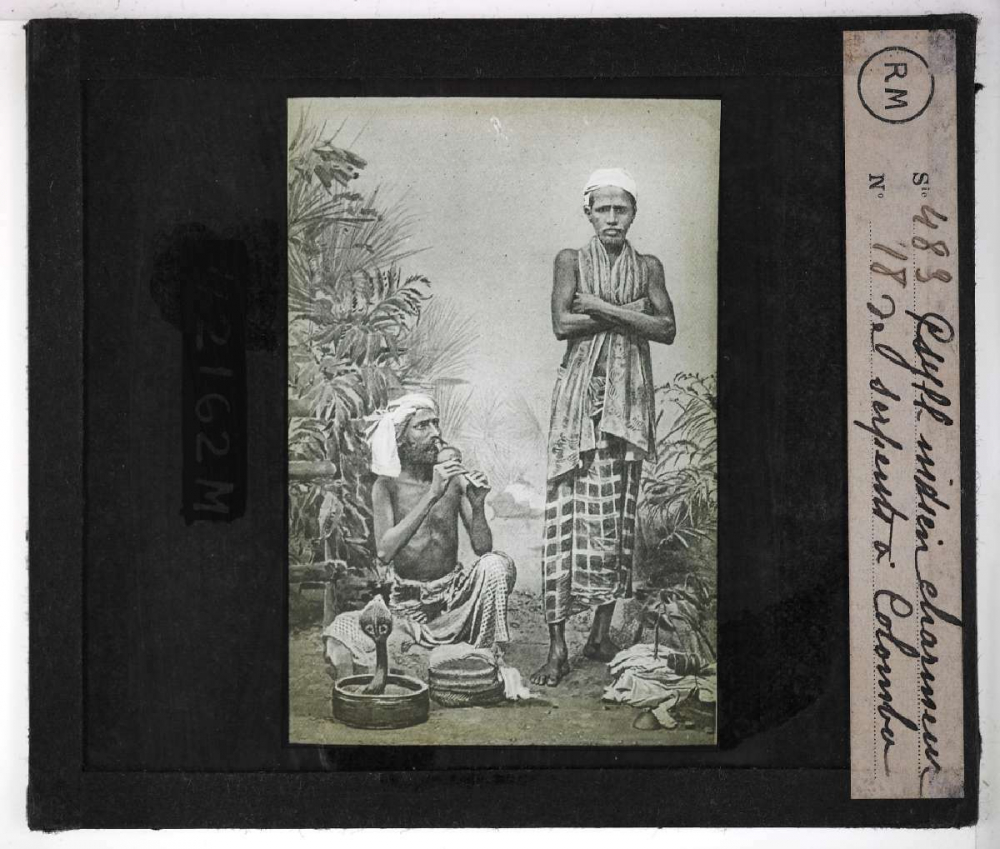 RM
Sie 483 Psylle indien charmeur
No 18 de serpents à Colombo
2162M